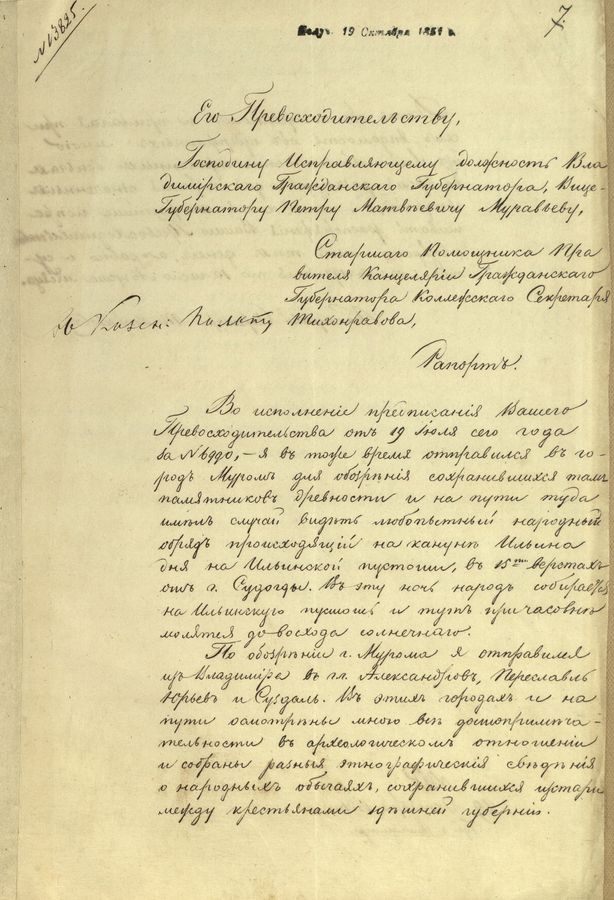 N 13825.
Получ. 19 Октября 1851 г.
7.
Его Превосходительству,
Господину Исправляющему должность Вла-
димірскаго Гражданскаго Губернатора, Вице-
Губернатору Петру Матвѣевичу Муравьеву,
Старшаго Помощника Пра-
вителя Канцеляріи Гражданскаго
Губернатора Коллежскаго Секретаря
Тихонравова,
Рапортъ.
Во исполненіе предписанія Вашего
Превосходительства отъ 19 Іюля сего года
за N 6990, – я въ тоже время отправился въ го-
родъ Муромъ для обозрѣнія сохранившихся тамъ
памятниковъ древности и на пути туда
имѣлъ случай видѣть любопытный народный
обрядъ происходящій на канунѣ Ильина
дня на Ильинской пустоши, въ 15ти верстахъ
отъ г. Судогды. Въ эту ночь народъ собирается
на Ильинскую пустошь и тутъ при часовнѣ
молятся до восхода солнечнаго.
По обозрѣніи г. Мурома я отправился
изъ Владиміра въ гг. Александровъ, Переславль
Юрьевъ и Суздаль. Въ этихъ городахъ и на
пути осмотрѣны мною всѣ достопримѣча-
тельности въ археологическомъ отношеніи
и собраны разныя этнографическія свѣдѣнія
о народныхъ обычаяхъ, сохранившихся изстари
между крестьянами здѣшней губерніи.